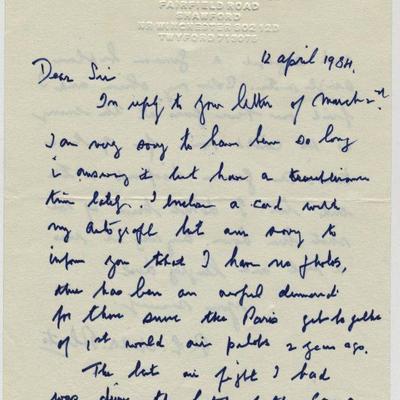 FAIRFIELD ROAD
SHAWFORD
NR WINCHESTER SO21 2D
TWYFORD 712072
12 april 1984.
Dear Sir
In reply to your letter of March 2nd.
I am very sorry to have been so long
i answering it but have a troublesome
time lately. I enclose a card with
my autograph but am sorry to
inform you that I have no photos,
there has been an awful demand
for those since the Paris get-together
of 1st world air pilots 2 years ago.
The last air fight I had
was the